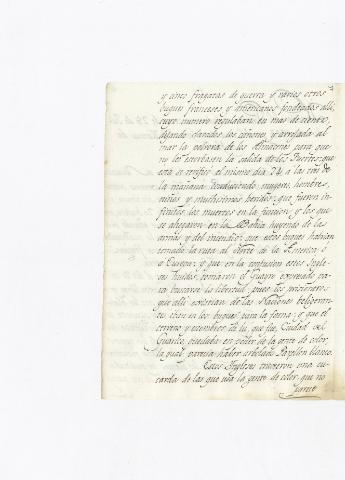 y cinco fragatas de guerra y varios otros
buques franceses y americanos fondeados alli,
cuyo numero regulaban en mas de ciento,
dejando clavados los cañones, y arrojada al
mar la polvora de los Almacenes para que
no les estorbasen la salida de los Puertos; que
esta se verificó el mismo dia 24 a las tres de
la mañana conduciendo mugeres, hombres,
niñas y muchisimos heridos; que fueron in
finitos los muertos en la funcion y los que
se ahogaron en la Bahia huyendo de las
armas y del incendio; que estos buques habian
tomado la ruta al Norte de la America
o Europa; y que en la confusion estos Ingle
ses huidos, tomaron el Guayro expresado pa
ra buscar su libertad, pues los prisioneros
que alli existian de las Naciones beligeran
tes iban en los buques para la faena; y que el
terreno y escombros de lo que fue Ciudad del
Guarico, quedaba en poder de la gente de color,
la qual parecia haber arbolado Pavellon blanco.
Estos Ingleses trageron una es-
carda de las que usa la gente de color, que no